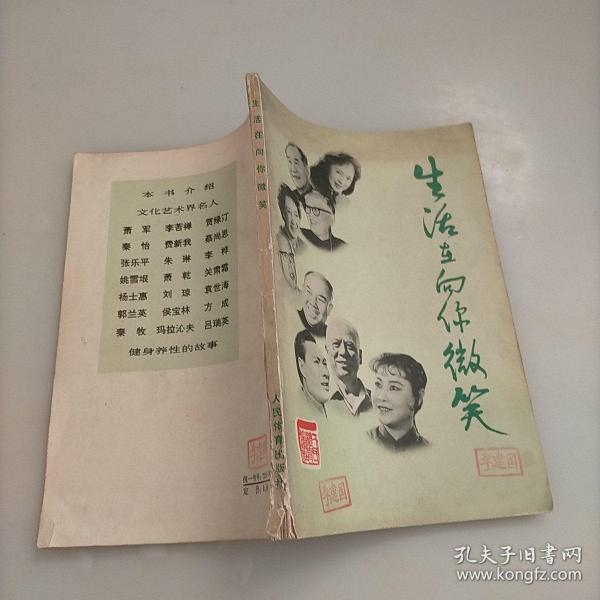 本书介绍
文化艺术界名人
萧军 李苦禅 贾缘汀
秦怡 费新我 慕尚思
张乐平 朱琳 李梓
姚雪垠 萧乾 关肃霜
杨士惠 刘琼 袁世海
郭兰英 侯宝林 方成
秦牧 玛拉沁夫 吕瑞英
健身养性的故事
生活在向你微笑
人民体育出版社
生活在向你微笑
李建国
李建国
孔夫子旧书网
www.kongfz.com